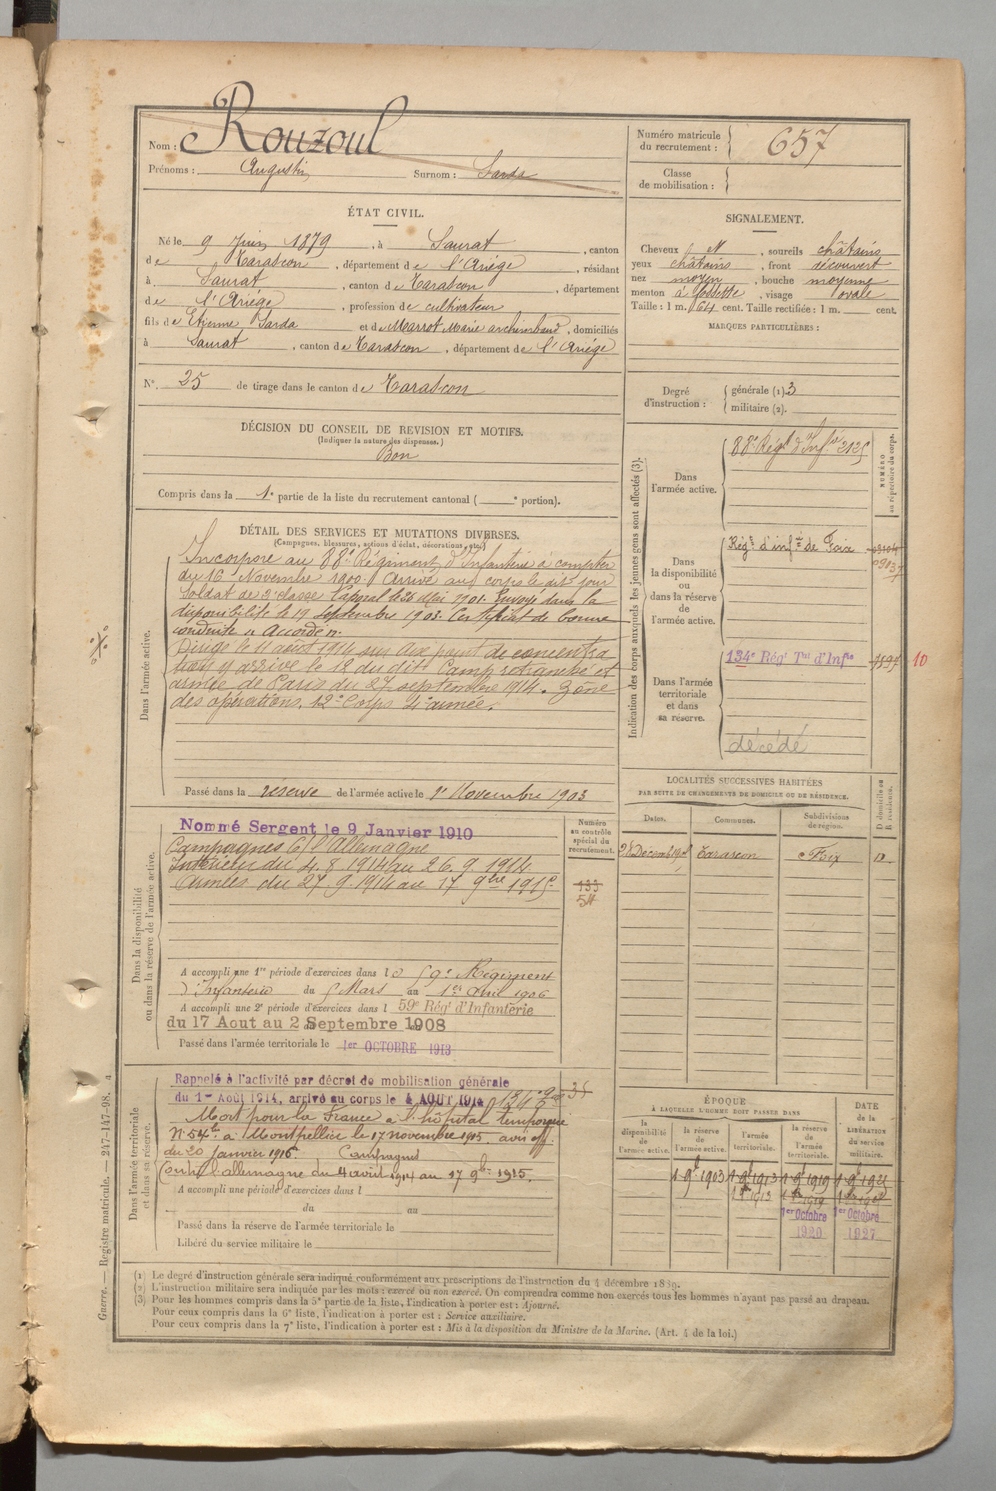 Nom : Rouzoul
Prénoms : Augustin Surnom : Sarda
Numéro matricule du recrutement : 657
Classe de mobilisation :
ÉTAT CIVIL.
Né le 9 Juin 1879, à Saurat, canton
de Tarascon, département de l'Ariège, résidant
à Saurat, canton de Tarascon, département
de l'Ariège, profession de cultivateur
fils de Etienne Sarda et de Marrot Marie, domiciliés
à Saurat, canton de Tarascon, département de l'Ariège
N° 25 de tirage dans le canton de Tarascon
DÉCISION DU CONSEIL DE REVISION ET MOTIFS.
(Indiquer la nature des dispenses.)
Bon
Compris dans la 1e partie de la liste du recrutement cantonal ( e portion).
SIGNALEMENT.
Cheveux et, sourcils châtains
yeux châtains, front découvert
nez moyen, bouche moyenne
menton à fossette, visage ovale
Taille : 1 m. 64 cent. Taille rectifiée : 1 m. cent.
MARQUES PARTICULIÈRES :
Degré d'instruction : générale (1). 3
militaire (2).
DÉTAIL DES SERVICES ET MUTATIONS DIVERSES.
(Campagnes, blessures, actions d'éclat, décorations, etc.)
Dans l'armée active.
Incorporé au 88e Régiment d'Infanterie à compter
du 16 Novembre 1900. Arrivé au corps le dit jour
Soldat de 2e classe. Caporal le 26 Mai 1901. Envoyé dans la
disponibilité le 19 septembre 1903. Certificat de bonne
conduite « Accordé ».
Dirigé le 11 août 1914 sur dix point de concentra
tion y arrive le 12 du dit Camp retranché et
armée de Paris du 27 septembre 1914. Zone
des opérations. 12e Corps 4e armée.
Passé dans la réserve de l'armée active le 1er Novembre 1903
Indication des corps auxquels les jeunes gens sont affectés (3).
NUMÉRO au répertoire du corps.
Dans l'armée active.
88e Régt d'Infie 2125
Dans la disponibilité ou dans la réserve de l'armée active.
Régt d'infie de Foix
Dans l'armée territoriale et dans sa réserve.
134e Régt Tal d'Infie 1897 10
décédé
Dans la disponibilité ou dans la réserve de l'armée active.
Nommé Sergent le 9 Janvier 1910
Campagnes Ct l'Allemagne
Intérieur du 4.8.1914 au 26.9.1914
Armées du 27.9.1914 au 17 9bre 1915
Numéro au contrôle spécial du recrutement.
133
54
A accompli une 1re période d'exercices dans le 59e Régiment
d'Infanterie du 5 Mars au 1er Avril 1906
A accompli une 2e période d'exercices dans l 59e Rég d'Infanterie
du 17 Aout au 2 Septembre 1908
Passé dans l'armée territoriale le 1er OCTOBRE 1913
LOCALITÉS SUCCESSIVES HABITÉES
PAR SUITE DE CHANGEMENTS DE DOMICILE OU DE RÉSIDENCE.
Dates. Communes. Subdivisions de région. D domicile ou R résidence.
Tarascon Foix D
Dans l'armée territoriale et dans sa réserve.
Rappelé à l'activité par décret de mobilisation générale
du 1er Août 1914, arrivé au corps le 4 AOUT 1914
Mort pour la France à l'hôpital temporaire
N° 54 à Montpellier le 17 novembre 1915 avis off.
du 20 janvier 1916. Campagnes
Contre l'allemagne du 4 août 1914 au 17 9bre 1915.
A accompli une période d'exercices dans l
du au
Passé dans la réserve de l'armée territoriale le
Libéré du service militaire le
ÉPOQUE
À LAQUELLE L'HOMME DOIT PASSER DANS
la disponibilité de l'armée active. la réserve de l'armée active. l'armée territoriale. la réserve de l'armée territoriale.
DATE de la LIBÉRATION du service militaire.
1 9bre 1903 1 9bre 1913 1 9bre 1919
1er Octobre 1920 1er Octobre 1927
(1) Le degré d'instruction générale sera indiqué conformément aux prescriptions de l'instruction du 4 décembre 1889.
(2) L'instruction militaire sera indiquée par les mots : exercé ou non exercé. On comprendra comme non exercés tous les hommes n'ayant pas passé au drapeau.
(3) Pour les hommes compris dans la 5e partie de la liste, l'indication à porter est : Ajourné.
Pour ceux compris dans la 6e liste, l'indication à porter est : Service auxiliaire.
Pour ceux compris dans la 7e liste, l'indication à porter est : Mis à la disposition du Ministre de la Marine. (Art. 4 de la loi.)
Guerre. — Registre matricule. — 247-147-98.